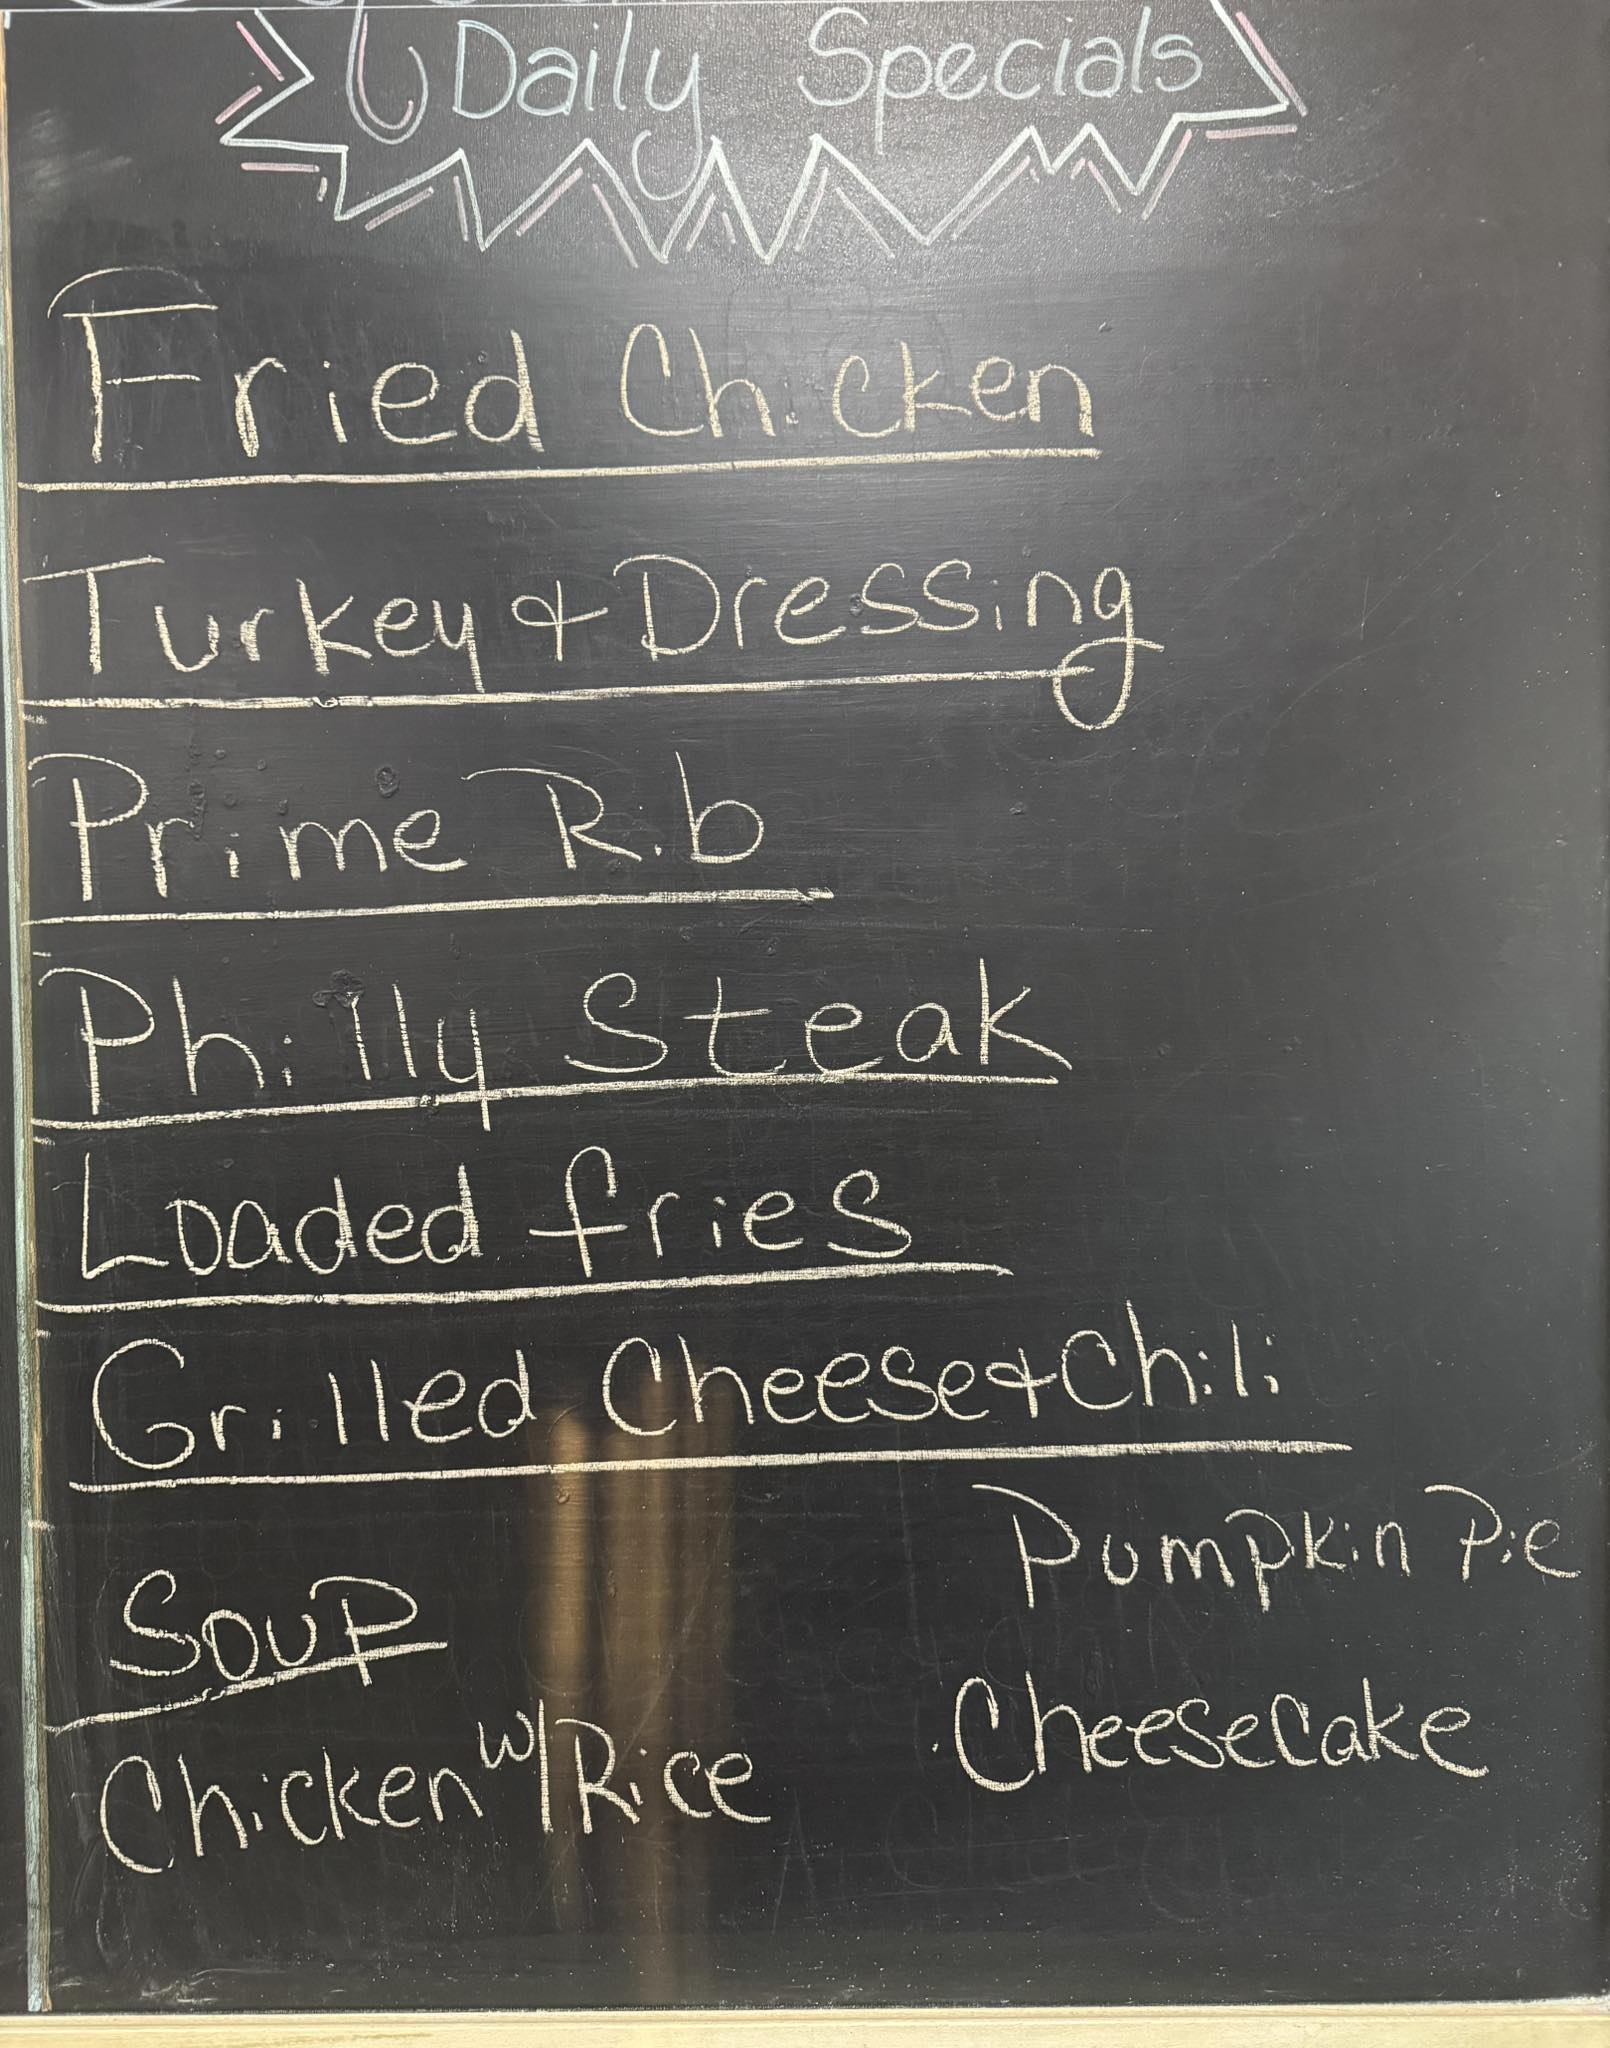 Daily Specials
Fried Chicken
Turkey & Dressing
Prime Rib
Philly Steak
Loaded fries
Grilled Cheese & Chili
Pumpkin Pie
Soup
Cheesecake
Chicken w/ Rice